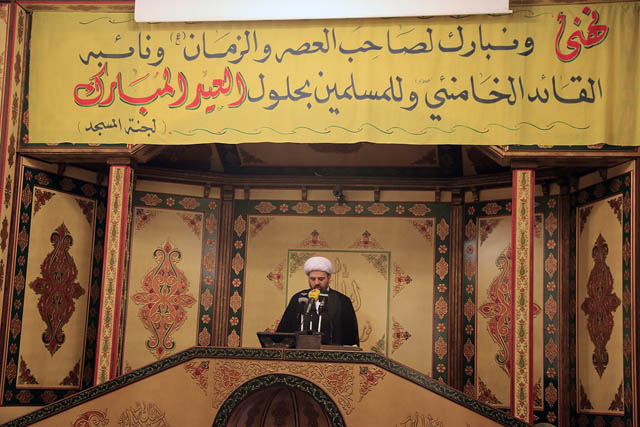 نهنئ ونبارك لصاحب العصر والزمان (ع) ونائبه
القائد الخامنئي وللمسلمين بحلول العيد المبارك
(لجنة المسجد)